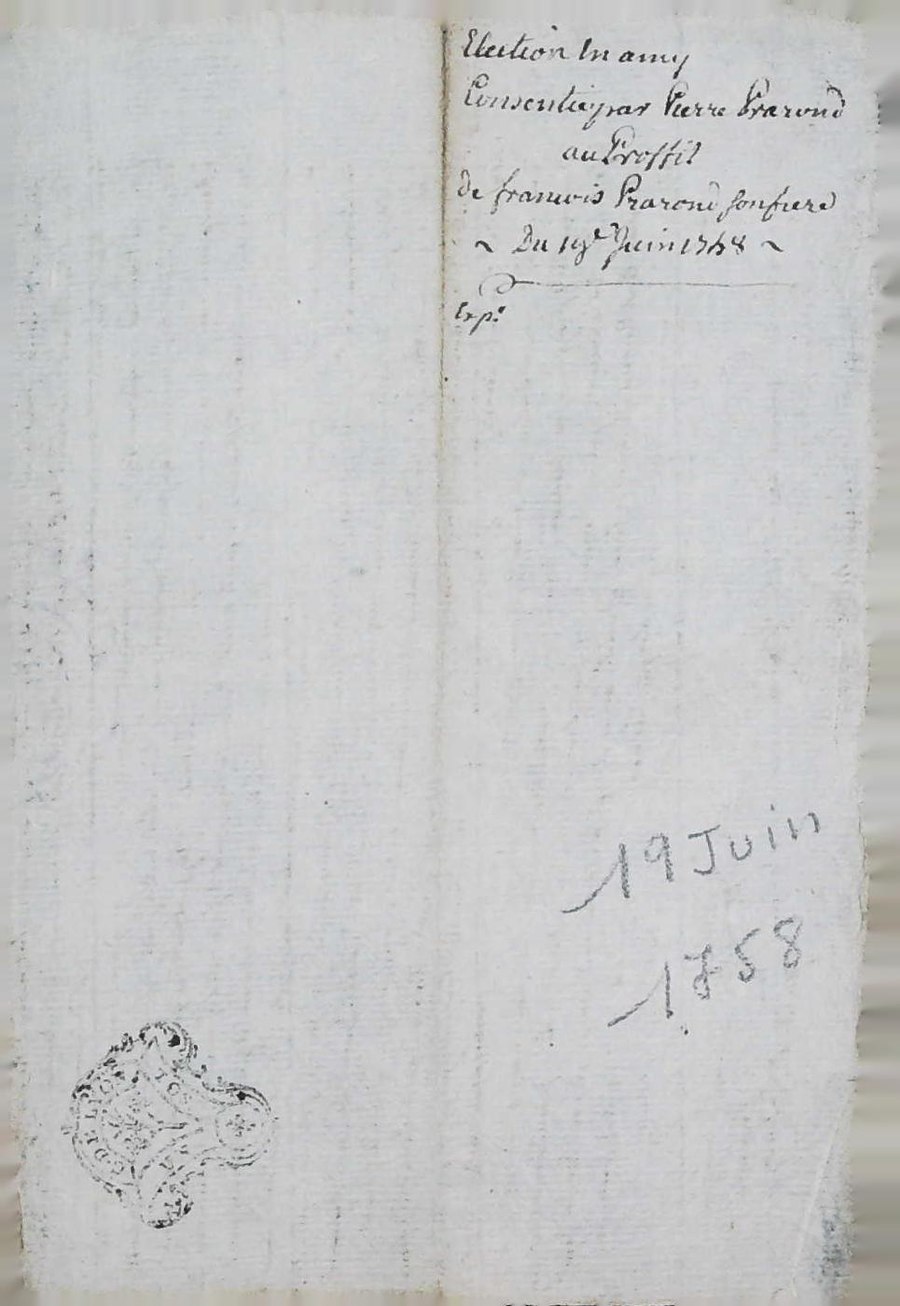 Election En amy
Consentie par Pierre Prarond
au Proffit
de francois Prarond son frere
~ Du 19e Juin 1758 ~
Expe
19 Juin
1758